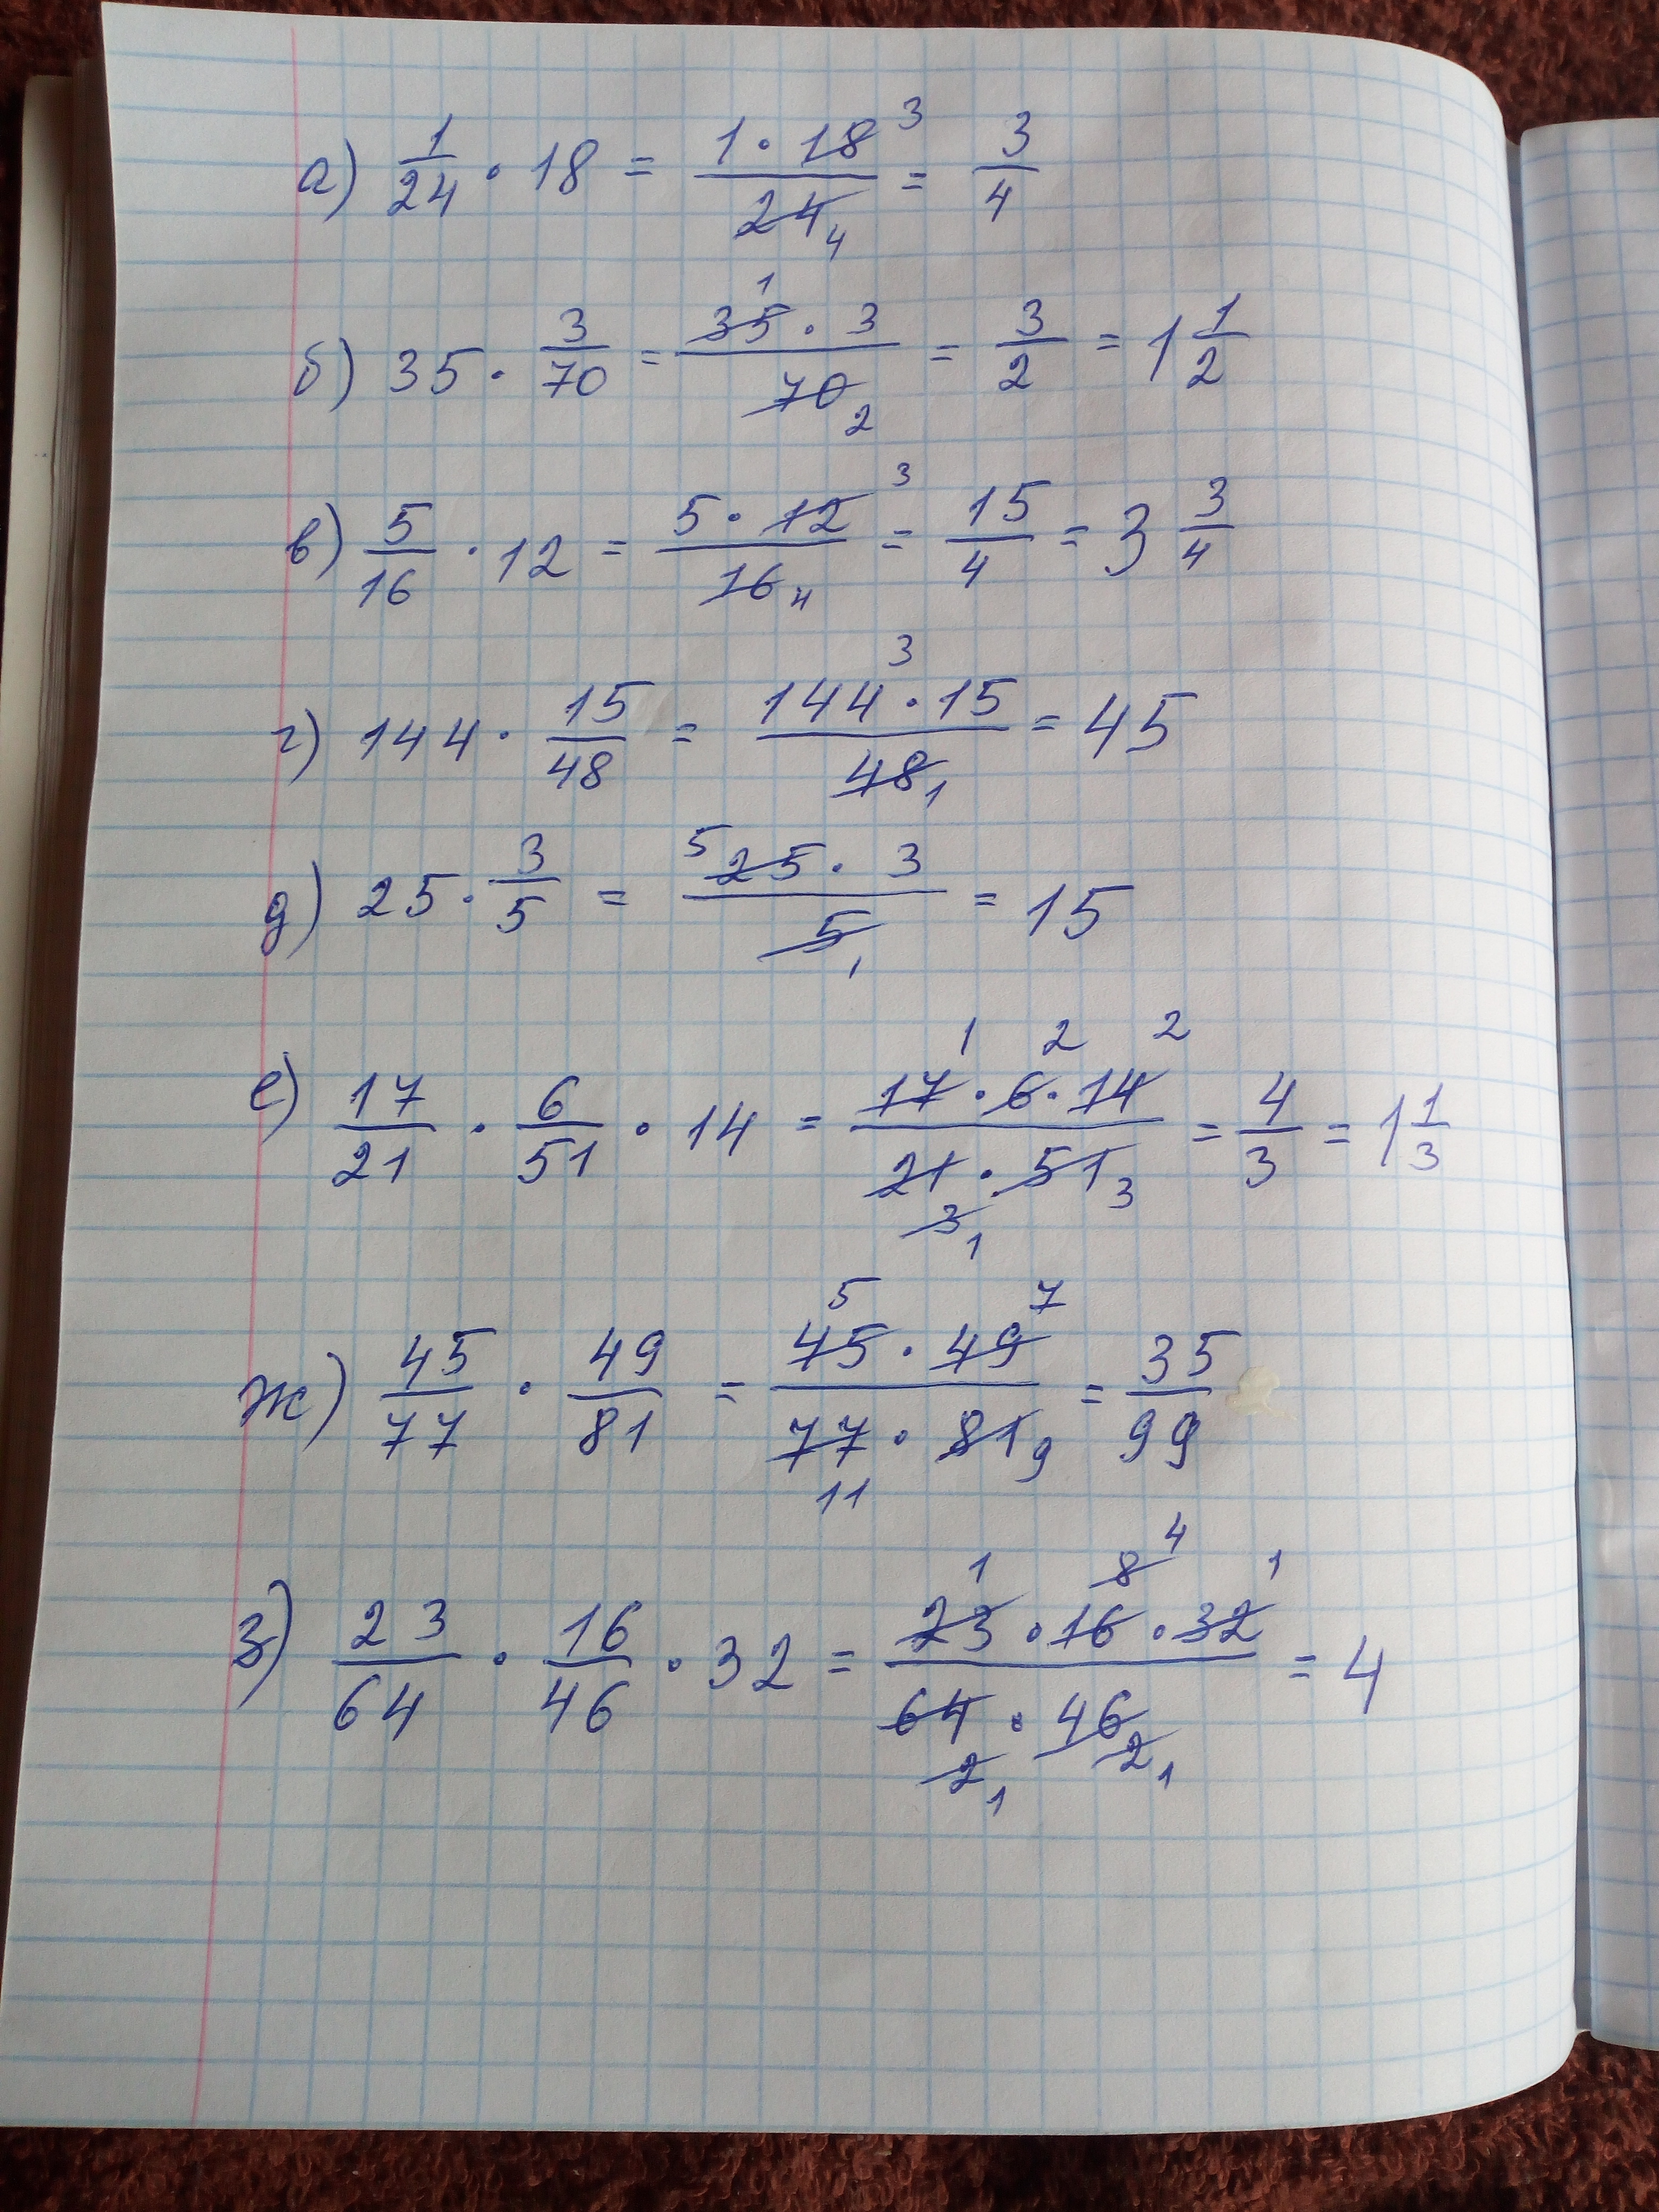 а) 1/24 · 18 = 1 · 18 3 / 24 4 = 3/4
б) 35 · 3/70 = 35 1 · 3 / 70 2 = 3/2 = 1 1/2
в) 5/16 · 12 = 5 · 12 3 / 16 4 = 15/4 = 3 3/4
г) 144 · 15/48 = 144 3 · 15 / 48 1 = 45
д) 25 · 3/5 = 5 25 · 3 / 5 1 = 15
е) 17/21 · 6/51 · 14 = 17 1 · 6 2 · 14 2 / 21 3 1 · 51 3 = 4/3 = 1 1/3
ж) 45/77 · 49/81 = 45 5 · 49 7 / 77 11 · 81 9 = 35/99
з) 23/64 · 16/46 · 32 = 23 1 · 16 8 4 · 32 1 / 64 2 1 · 46 2 1 = 4